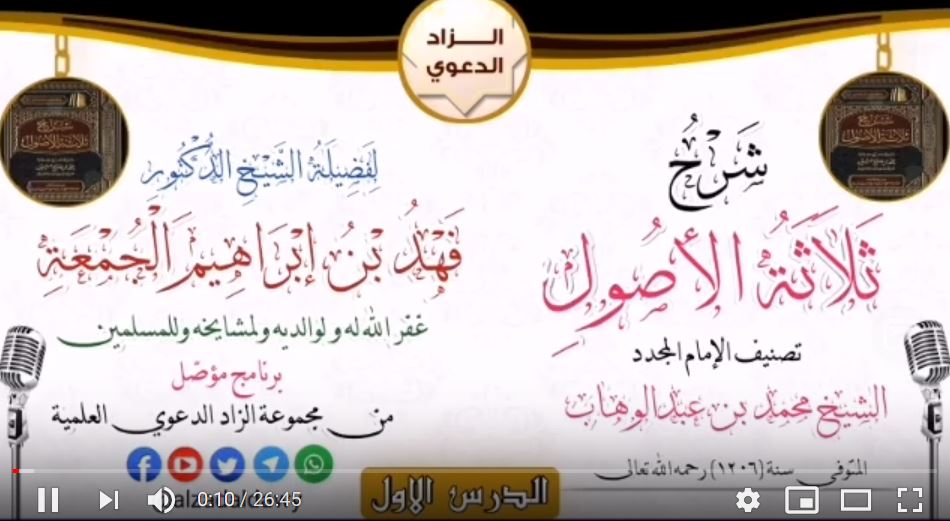 الـزاد
الدعوي
شَرْحُ
ثَلَاثَةُ الأُصُولِ
تصنيف الإمام المجدد
الشيخ محمد بن عبدالوهاب
المتوفى سنة (١٢٠٦) رحمه الله تعالى
لِفَضِيلَةِ الشَّيْخِ الدُّكْتُورِ
فَهْدُ بْنُ إِبْرَاهِيمَ الْجُمْعَةِ
غفر الله له ولوالديه ولمشايخه وللمسلمين
برنامج مؤصّل
من مجموعة الزاد الدعوي العلمية
الدرس الاول
0:10 / 26:45